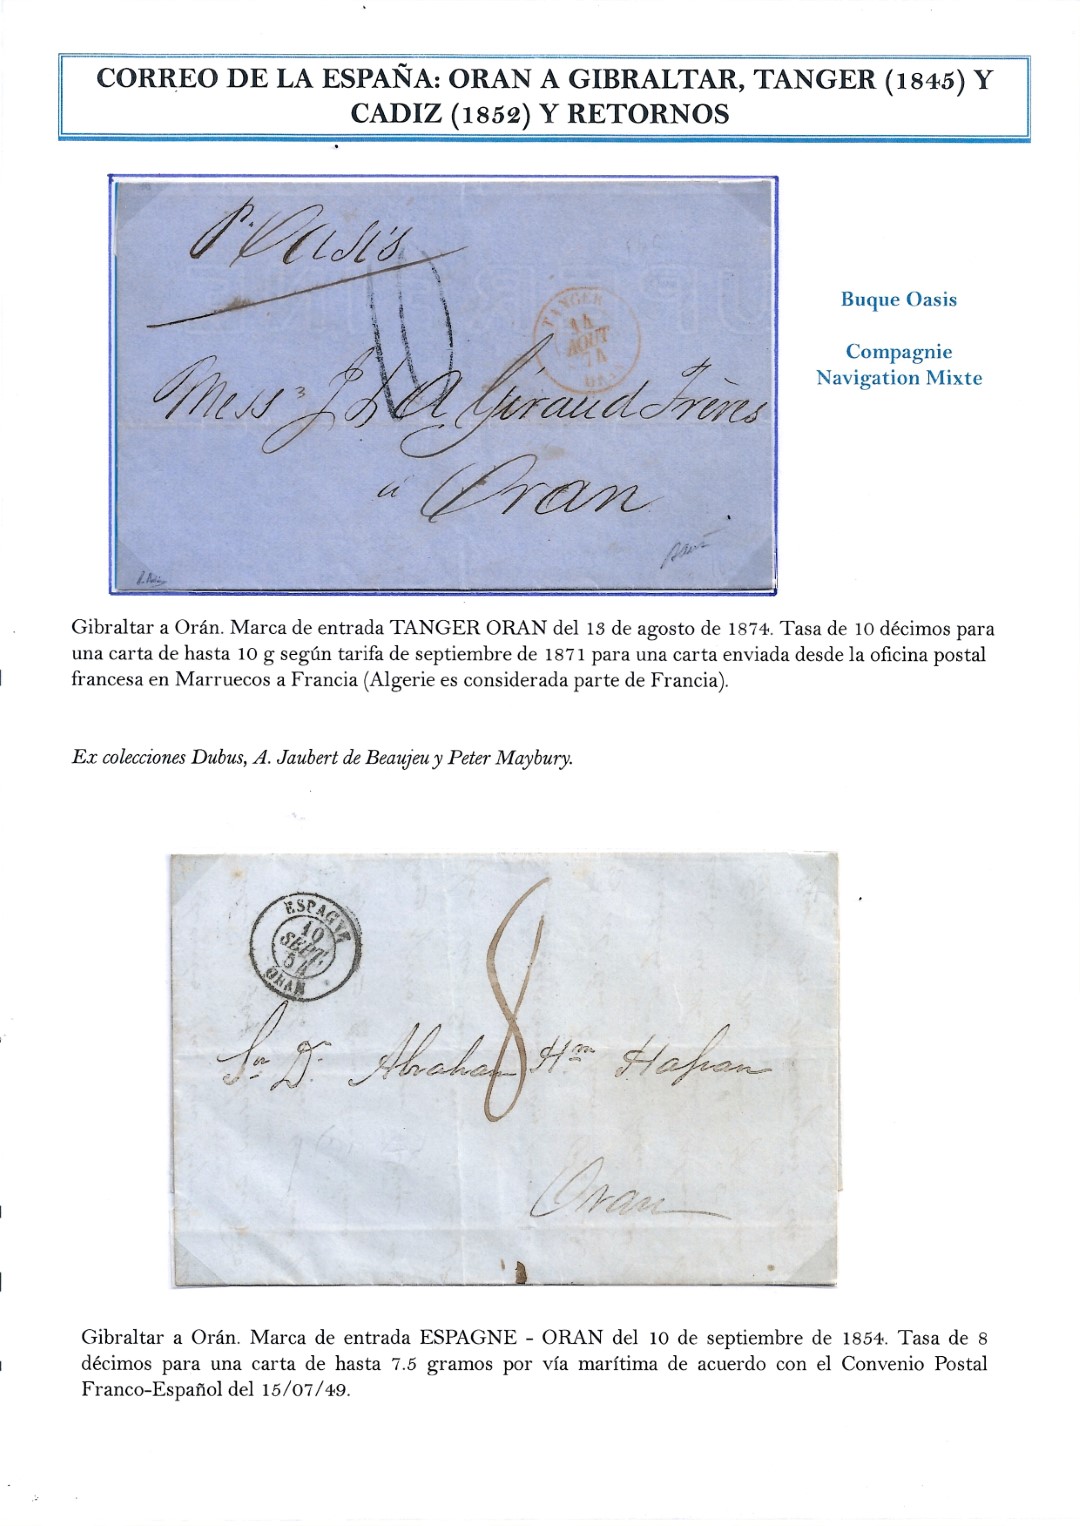 CORREO DE LA ESPAÑA: ORAN A GIBRALTAR, TANGER (1845) Y
CADIZ (1852) Y RETORNOS
P. Oasis
TANGER
14
AOUT
74
ORAN
10
Mess J & A Giraud Frères
à Oran
Buque Oasis
Compagnie
Navigation Mixte
Gibraltar a Orán. Marca de entrada TANGER ORAN del 13 de agosto de 1874. Tasa de 10 décimos para
una carta de hasta 10 g según tarifa de septiembre de 1871 para una carta enviada desde la oficina postal
francesa en Marruecos a Francia (Algerie es considerada parte de Francia).
Ex colecciones Dubus, A. Jaubert de Beaujeu y Peter Maybury.
ESPAGNE
10
SEPT.
54
ORAN
8
Sr. D. Abraham Hm
Oran
Gibraltar a Orán. Marca de entrada ESPAGNE - ORAN del 10 de septiembre de 1854. Tasa de 8
décimos para una carta de hasta 7.5 gramos por vía marítima de acuerdo con el Convenio Postal
Franco-Español del 15/07/49.